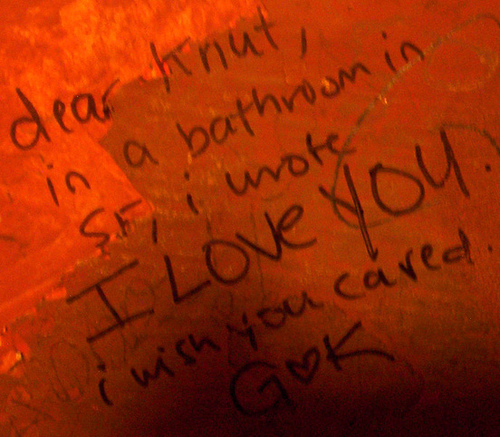 dear Knut,
in a bathroom in
SF, i wrote
I LOVE YOU.
i wish you cared.
G♥K